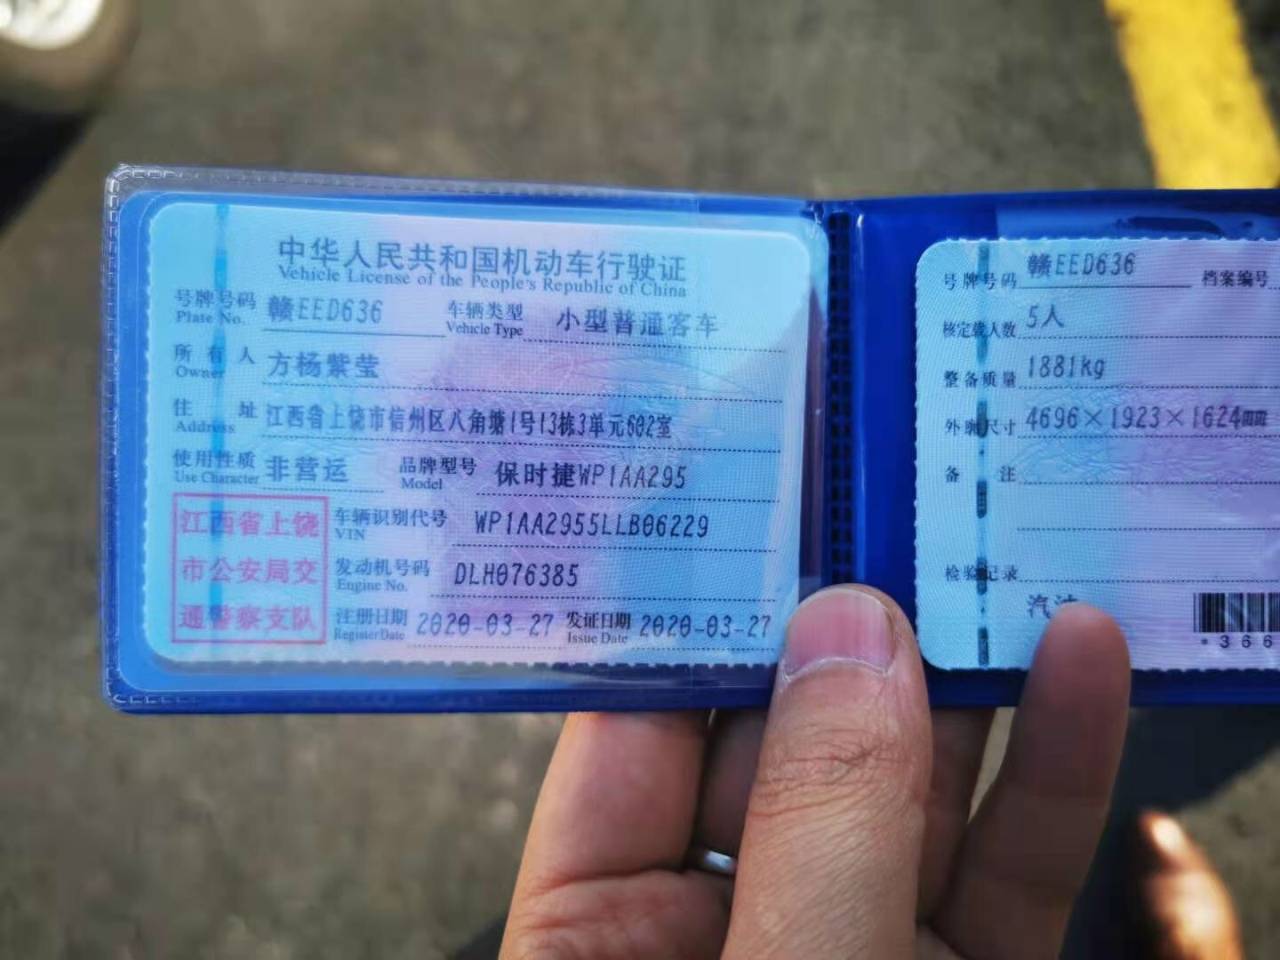 中华人民共和国机动车行驶证
Vehicle License of the People's Republic of China
号牌号码 赣EED636 车辆类型 小型普通客车
Plate No. Vehicle Type
所有人 方杨紫莹
Owner
住址 江西省上饶市信州区八角塘1号13栋3单元602室
Address
使用性质 非营运 品牌型号 保时捷WP1AA295
Use Character Model
江西省上饶
市公安局交
通警察支队
车辆识别代号 WP1AA2955LLB06229
VIN
发动机号码 DLH076385
Engine No.
注册日期 2020-03-27 发证日期 2020-03-27
Register Date Issue Date
号牌号码 赣EED636 档案编号
核定载人数 5人
整备质量 1881kg
外廓尺寸 4696×1923×1624mm
备注
检验记录
汽油
*366